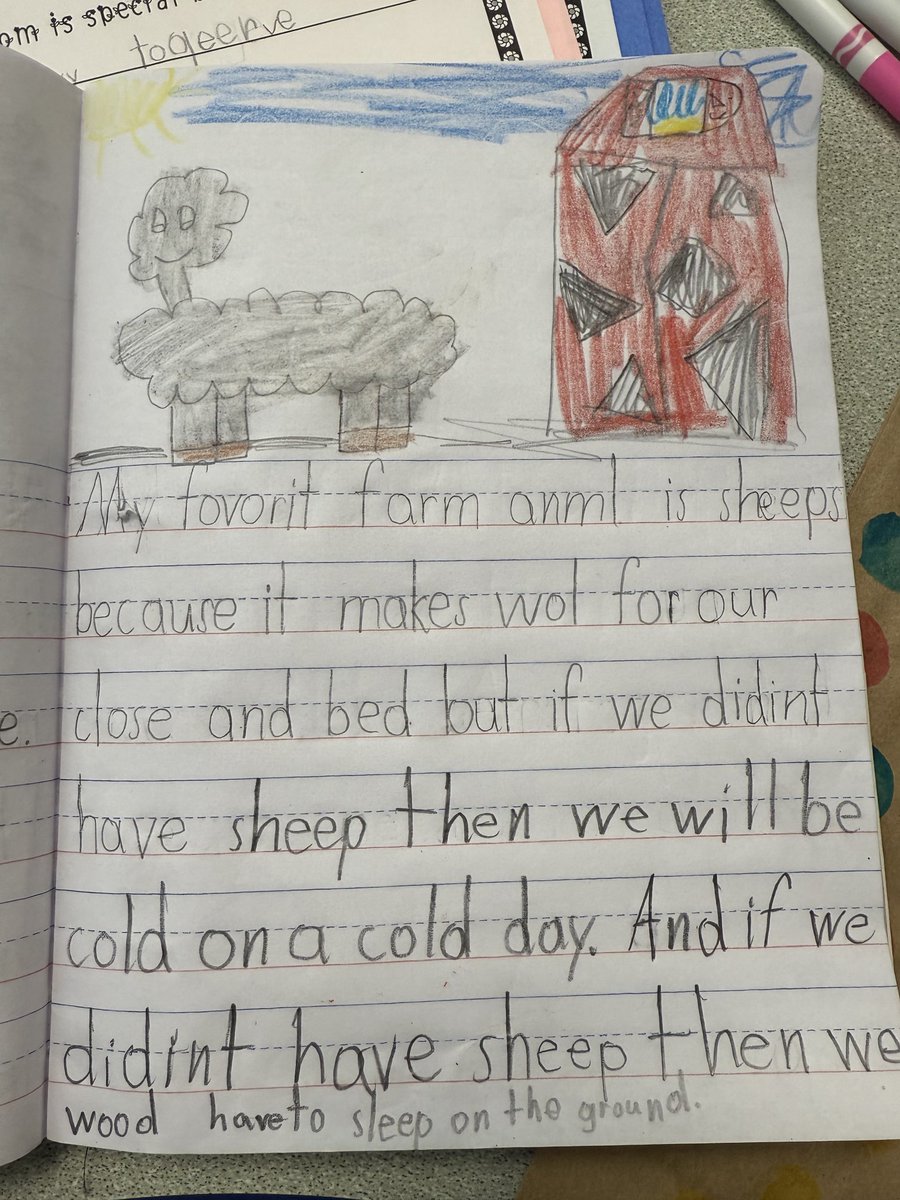 om is special
togeerve
My fovorit farm anml is sheeps
because it makes wol for our
close and bed but if we didint
e.
have sheep then we will be
cold on a cold day. And if we
didint have sheep then we
wood have to sleep on the ground.